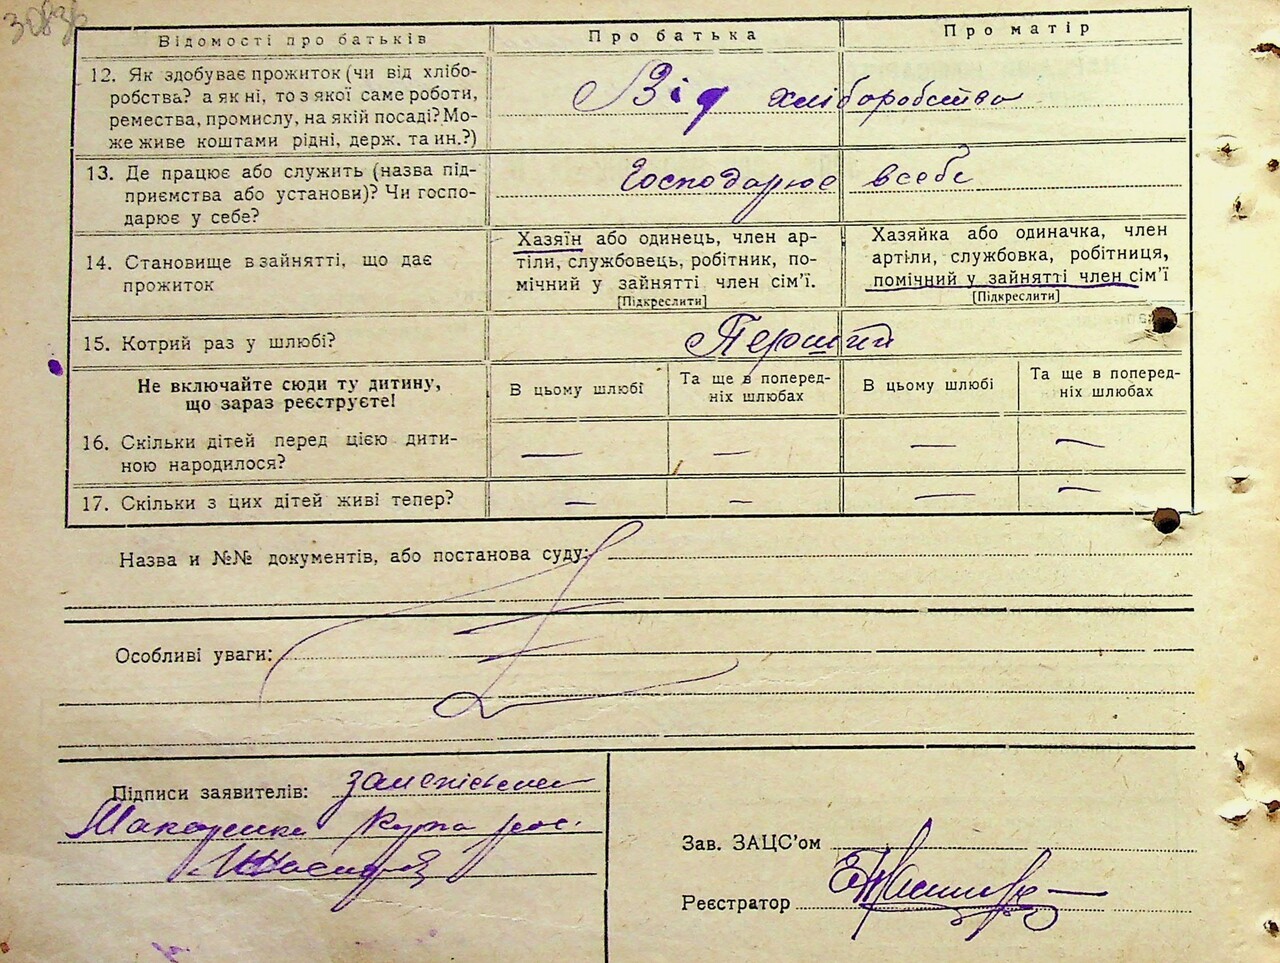 30836
Відомості про батьків
Про батька
Про матір
12. Як здобуває прожиток (чи від хлібо-
робства? а як ні, то з якої саме роботи,
ремества, промислу, на якій посаді? Мо-
же живе коштами рідні, держ. та ин.?)
Від хліборобства
13. Де працює або служить (назва під-
приємства або установи)? Чи госпо-
дарює у себе?
Господарює всебе
14. Становище в зайнятті, що дає
прожиток
Хазяїн або одинець, член ар-
тіли, службовець, робітник, по-
мічний у зайнятті член сім’ї.
[Підкреслити]
Хазяйка або одиначка, член
артіли, службовка, робітниця,
помічний у зайнятті член сім’ї
[Підкреслити]
15. Котрий раз у шлюбі?
Перший
Не включайте сюди ту дитину,
що зараз реєструєте!
В цьому шлюбі
Та ще в поперед-
ніх шлюбах
В цьому шлюбі
Та ще в поперед-
ніх шлюбах
16. Скільки дітей перед цією дити-
ною народилося?
— — — —
17. Скільки з цих дітей живі тепер?
— — — —
Назва и №№ документів, або постанова суду:
Особливі уваги:
Підписи заявителів:
Зав. ЗАЦС’ом
Реєстратор